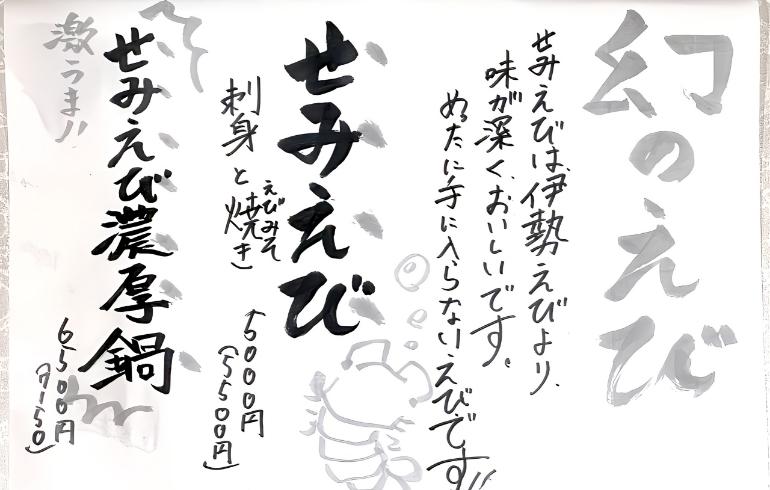 幻のえび
せみえびは、伊勢えびより、
味が深く、おいしいです。
めったに手に入らないえびです!!
せみえび
刺身と焼き
えびみそ
5000円
(5500円)
せみえび濃厚鍋
6500円
(7150)
激うま!!